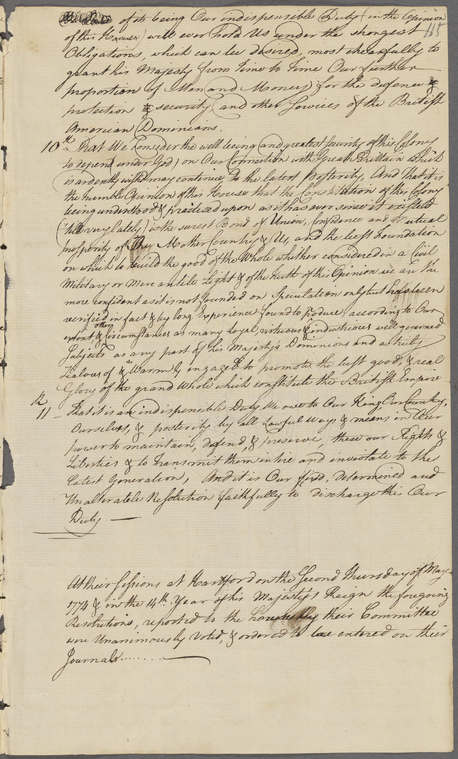 of its being Our indispensible Duty (in the Opinion
of this House) will ever hold Us under the strongest
Obligations, which can be desired, most chearfully to
grant his Majesty from time to time Our further
proportion of Men and Money for the defence &
protection & security, and other Services of the British
American Dominions.
10th That We Consider the well being and greatest Security of this Colony
to depend (under God) on Our Connection with Great Brittain which
is ardently wish'd may continue to the latest posterity, And that it is
the humble Opinion of this House that the Constitution of this Colony
being understood & practised upon as it has ever since it existed
(till very lately) is the surest Bond of Union, Confidence and Mutual
prosperity of the Mother Country & Us, and the best foundation
on which to build the good of the Whole whether considered in a Civil
Military or Mercantile Light & of the truth of this Opinion we are the
more confident as it is not founded on Speculation only but has been
verified in fact & by long Experience found to produce according to Our
extent & other Circumstances as many Loyal virtuous & industrious well governed
Subjects as any part of his Majesty's Dominions and as truly
Zealous & as Warmly engaged to promote the best good & real
Glory of the grand Whole which constitute the British Empire
11th That it is an indispensible Duty We owe to Our King Our Country
Ourselves, & posterity by all Lawful Ways & means in Our
power to maintain, defend & preserve these our Rights &
Liberties & to Transmit them intire and inviolate to the
latest Generation, And it is Our fixed, Determined and
Unalterable Resolution faithfully to discharge this Our
Duty
At their Sessions at Hartford on the Second Thursday of May
1774 & in the 14th Year of his Majesty's Reign the foregoing
Resolutions, reported to the house by their Committee
were Unanimously Voted, & ordered to be entered on their
Journals